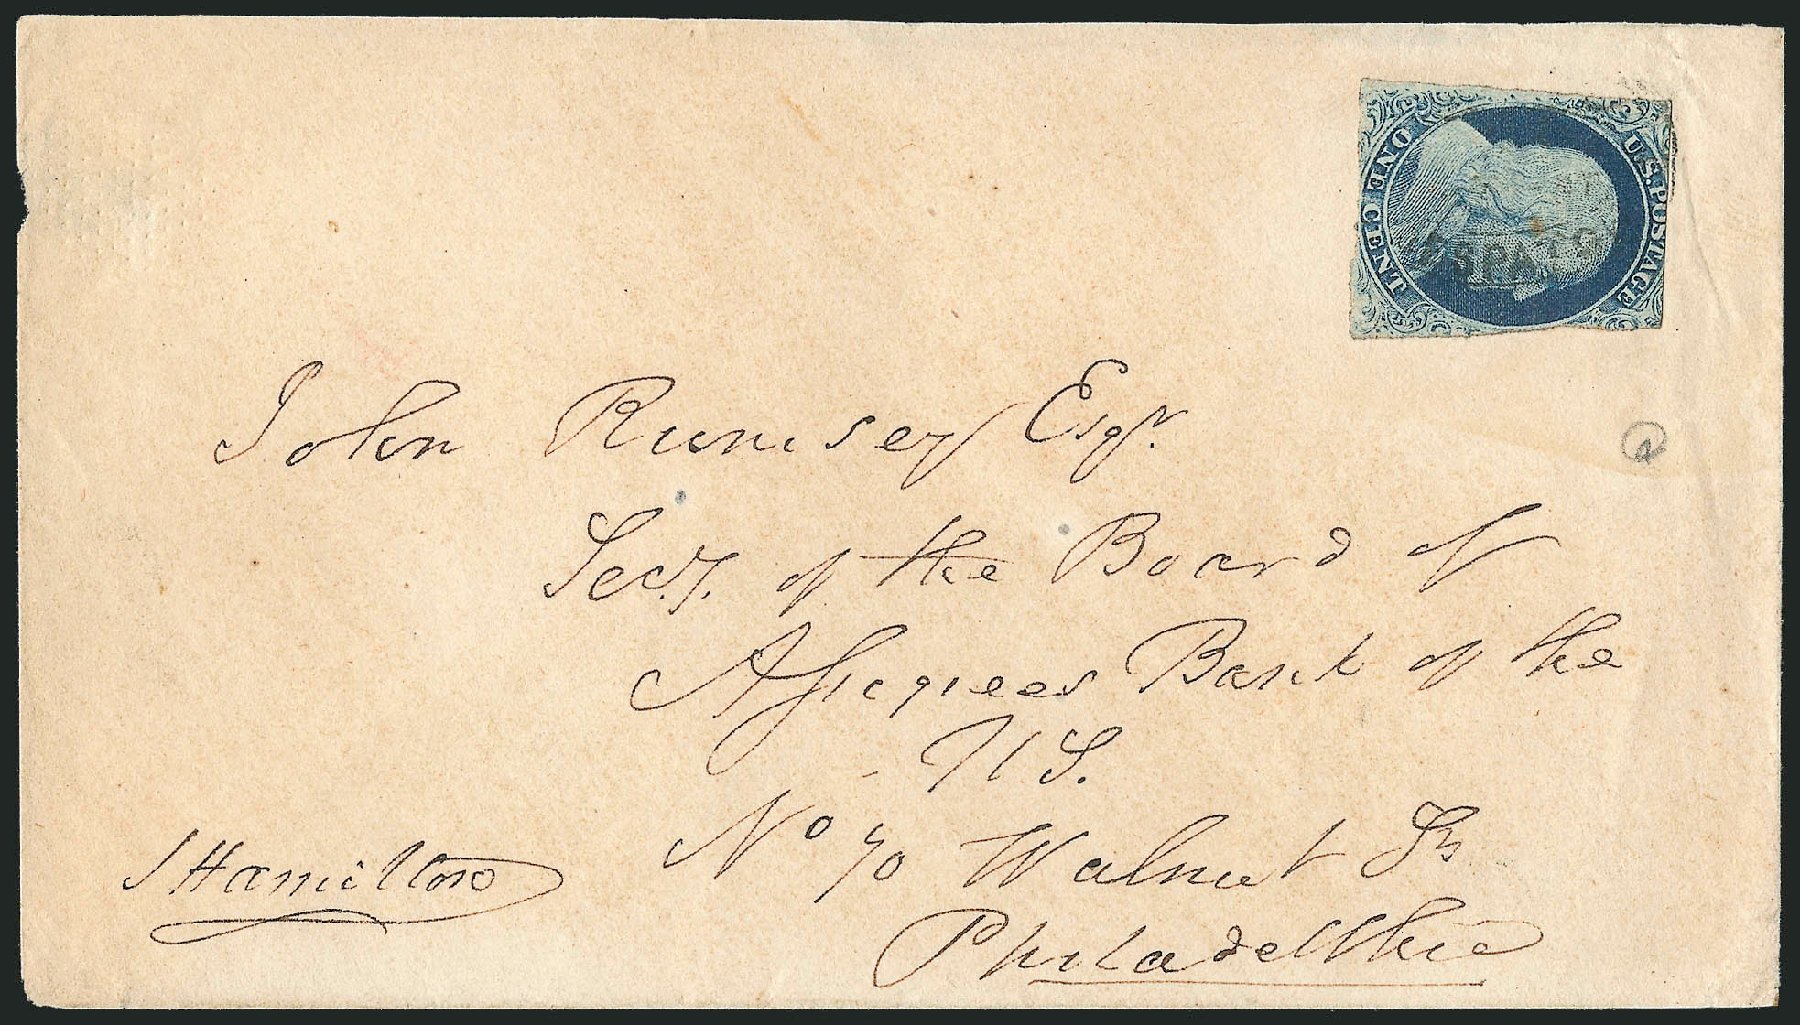 U.S. POSTAGE
ONE CENT
John Rumsey Esqr.
Secy. of the Board of
Asignees Bank of the
U S.
No 70 Walnut St
Philadelphia
J Hamilton